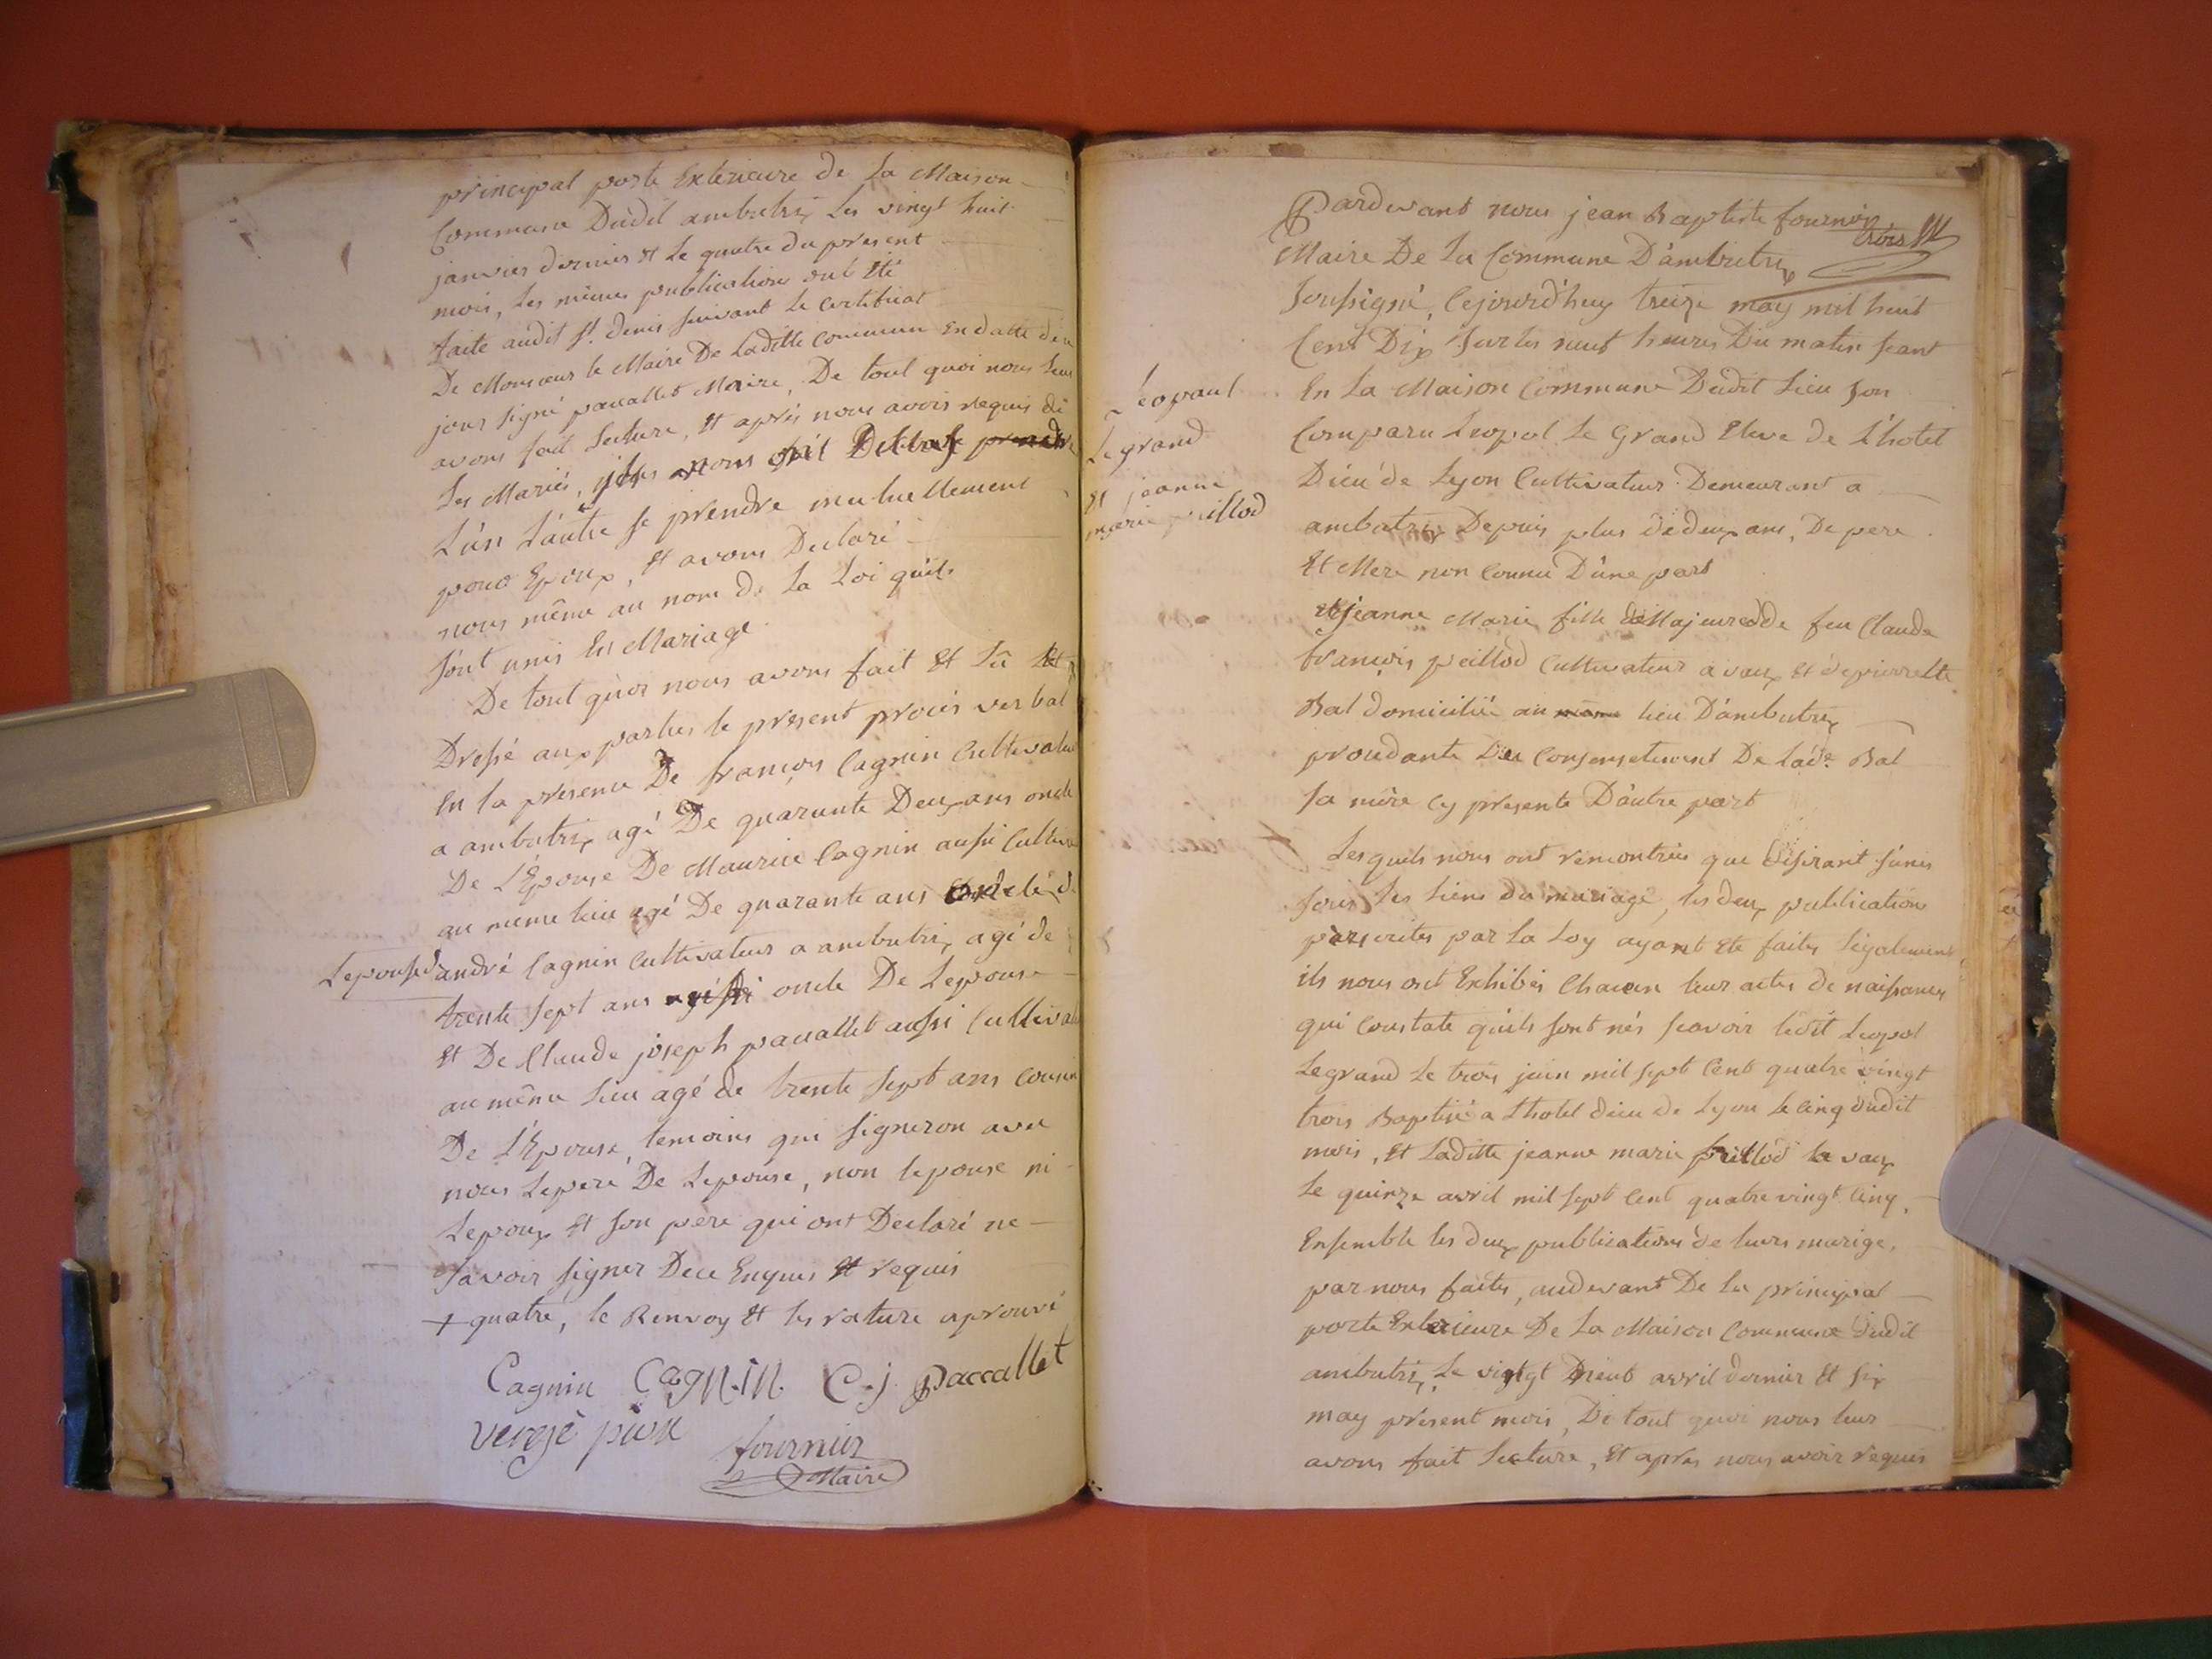 principal porte Exterieure de La Maison
Commune Dudit ambutrix Les vingt huit
janvier dernier et Le quatre du present
mois, Les mêmes publications ont Eté
faite audit St. denis suivant Le Certificat
De Monsieur le Maire De Laditte Commune En datte deu
jour signé paccallet Maire, De tout quoi nous Leur
avons fait Lecture, Et après nous avoir requis de
Les Mariés, ils nous ont Declaré prendre
L'un L'autre se prendre mutuellement
pour Epoux, et avons Declaré
nous même au nom de La Loi quils
sont unis En Mariage
De tout quoi nous avons fait Et Lû Et
Dressé aux parties le present procès verbal
En la presence De françois Cagnin Cultivateur
a ambutrix agé De quarante Deux ans oncle
De L'Epouse De Maurice Cagnin aussi Cultiva
au meme lieu agé De quarante ans oncle de
Lepouse d'andré Cagnin Cultivateur a ambutrix agé de
trente sept ans aussi oncle De Lepouse
Et De Claude joseph paccallet aussi Cultivat
au même Lieu agé de trente sept ans Cousin
De L'Epouse, temoins qui signeron avec
nous Lepere De Lepouse, non lepouse ni
Lepoux Et son pere qui ont Declaré ne
savoir signer Dece Enquis Et requis
+ quatre, le Renvoy Et les rature aprouvé
Cagnin CagNiN. C. j. paccallet
fournier
Maire
Leopaul
Legrand
Et jeanne
marie peillod
Pardevant nous jean Baptiste fournier
trois
Maire De La Commune D'ambutrix
soussigné, Cejourd'huy treize may mil huit
Cent Dix Sur les neuf heures Du matin seant
En La Maison Commune Dudit Lieu son
Comparu Leopol Le Grand Eleve de L'hotel
Dieu de Lyon Cultivateur Demeurant a
ambutrix Depuis plus de deux ans, De pere
Et Mere non Connu D'une part
Et jeanne Marie fille Majeure de feu Claude
françois peillod Cultivateur a vaux Et de pierrette
Bal domiciliée au même lieu D'ambutrix
procedante Du Consensetement De Lade. Bal
sa mère Cy presente D'autre part
Les quels nous ont remontrées que Desirant s'unir
sous Les Liens du mariage, les deux publication
perscrites par La Loy ayant Ete faites Légalement,
ils nous ont Exhibés Chacun leur actes de naissances
qui Constate quils sont nés scavoir ledit Leopol
Legrand Le trois juin mil sept Cent quatre vingt
trois Baptisé a Lhotel dieu de Lyon Le Cinq dudit
mois, Et Laditte jeanne marie peillod a vaux
Le quinze avril mil sept Cent quatre vingt Cinq,
Ensemble les deux publications de leurs marige,
par nous faites, audevant De La principal
porte Exterieure De La Maison Commune dudit
ambutrix, Le vingt neuf avril dernier Et six
may présent mois, De tout quoi nous leur
avons fait Lecture, Et après nous avoir requis